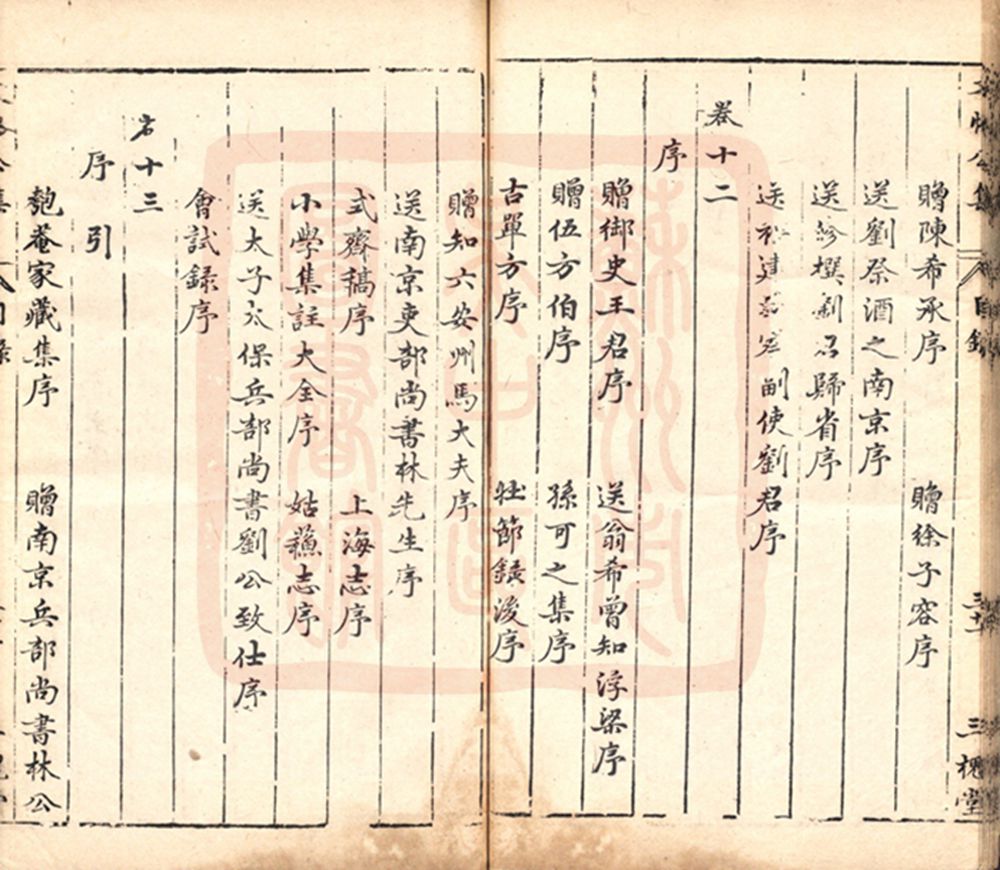 文恪公集 目錄 三十 三槐堂
贈陳希承序 贈徐子容序
送劉祭酒之南京序
送 撰劉君歸省序
送福建 副使劉君序
卷十二
序
贈御史王君序 送翁希曾知浮梁序
贈伍方伯序 孫可之集序
古單方序 壯節錄後序
贈知六安州馬大夫序
送南京吏部尚書林先生序
式齋稿序 上海志序
小學集註大全序 姑蘇志序
送太子太保兵部尚書劉公致仕序
會試錄序
卷十三
序 引
匏菴家藏集序 贈南京兵部尚書林公